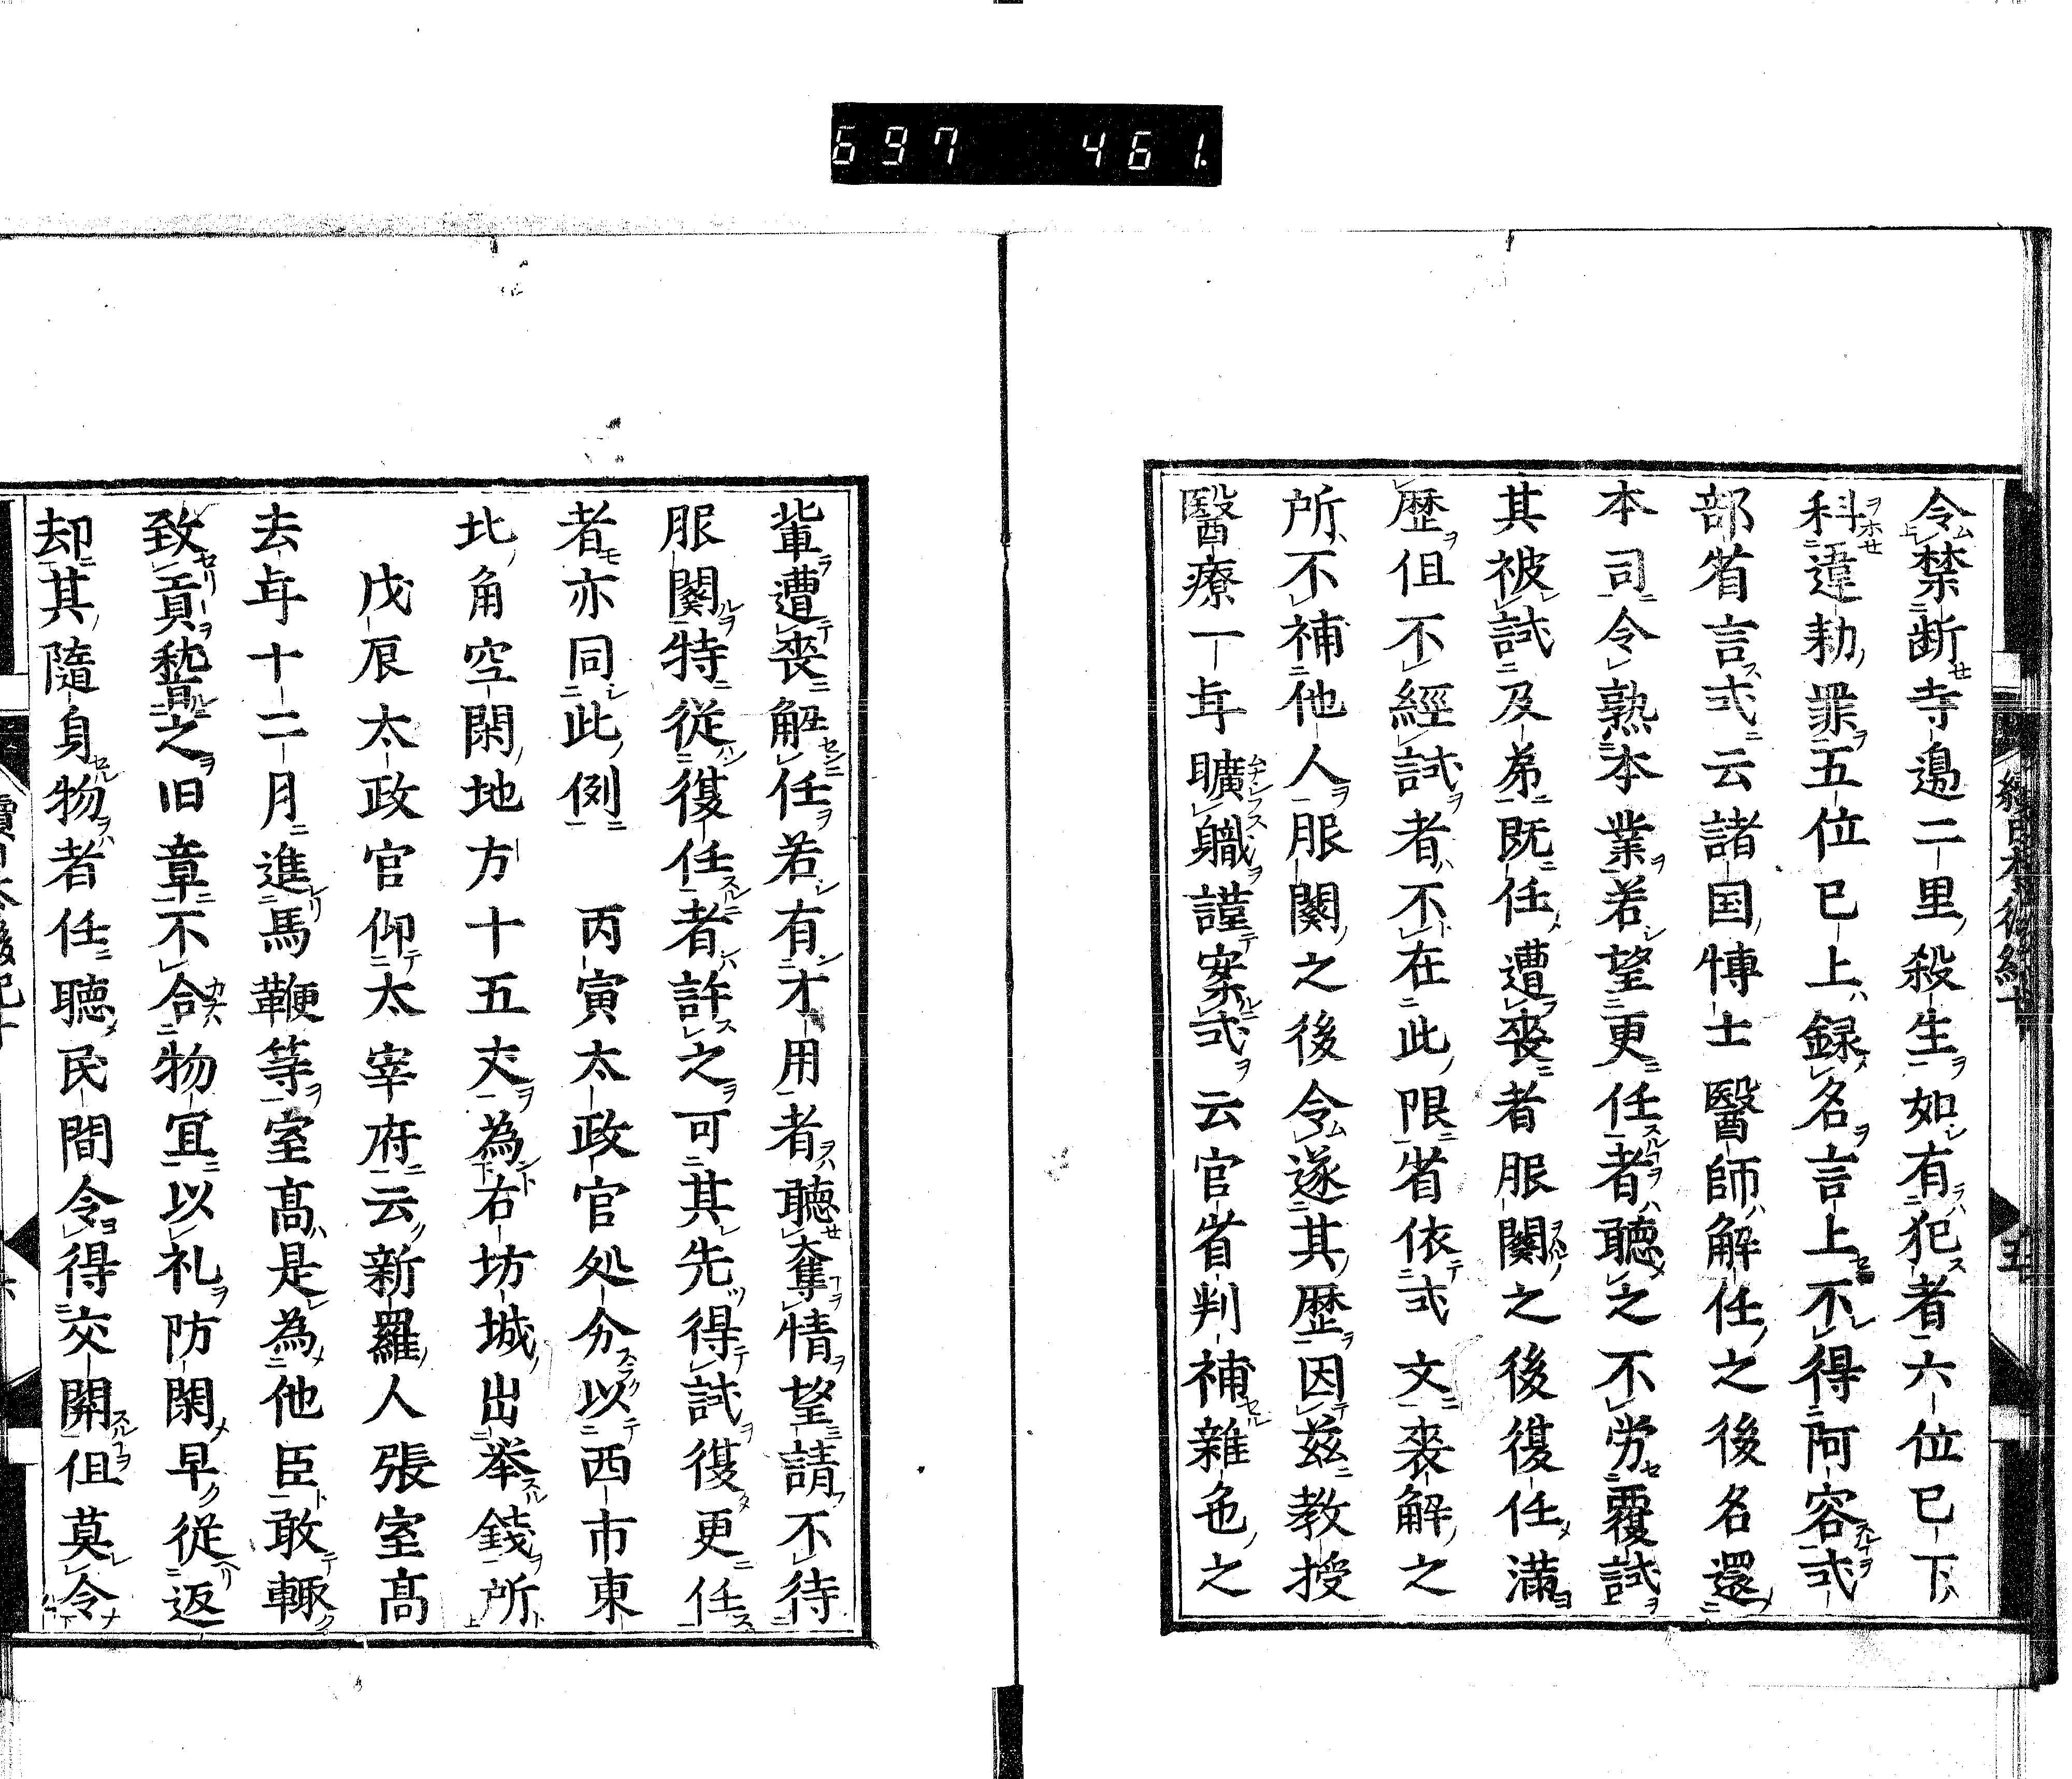 697 461.
令禁断寺邉二里殺生如有犯者六位已下
科違勅罪五位已上録名言上不得阿容式
部省言式云諸国博士醫師解任之後名還
本司令熟本業若望更任者聴之不労覆試
其被試及弟既任遭喪者服闋之後復任満
歴但不經試者不在此限省依式文喪解之
所不補他人服闋之後令遂其歴因茲教授
醫療一年曠職謹案式云官省判補雜色之
軰遭喪解任若有才用者聴奪情望請不待
服闋特從復任者許之可其先得試復更任
者亦同此例　丙寅太政官処分以西市東
北角空閑地方十五丈為右坊城出挙錢所
　戊辰太政官仰太宰府云新羅人張室高
去年十二月進馬鞭等室高是為他臣敢輙
致貢稽之旧章不合物宜以礼防閑早從返
却其隨身物者任聴民間令得交関但莫令